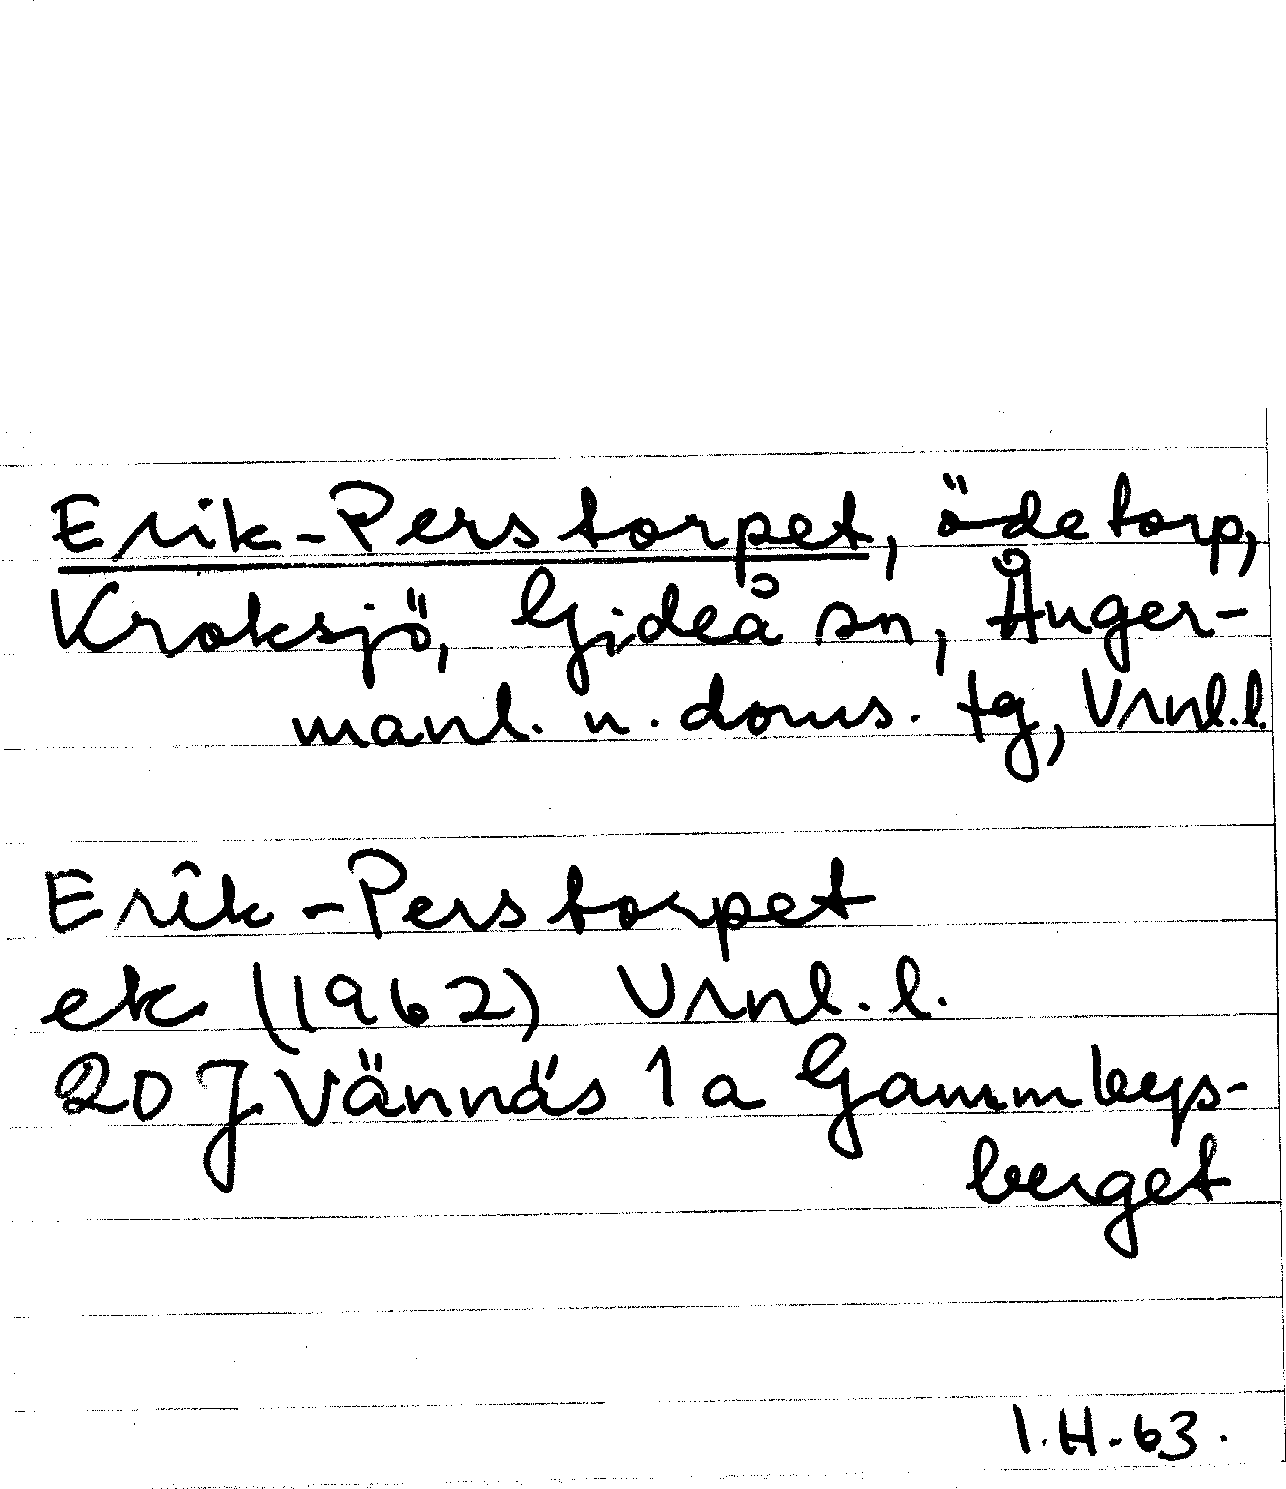 Erik-Perstorpet, ödetorp,
Kroksjö, Gideå sn, Ånger-
manl. n. doms. tg, Vrnl.l.
Erik-Perstorpet
ek (1962) Vrnl.l.
20 J Vännäs 1 a Gammbys-
berget
I.H-63.